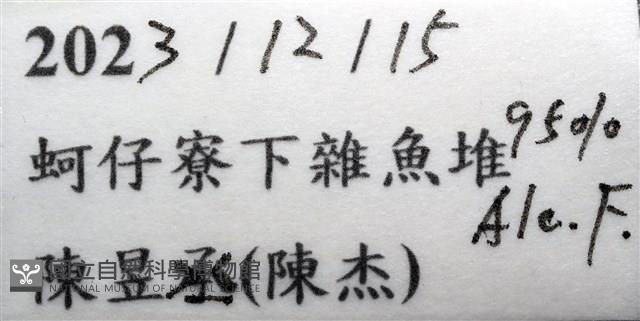 2023/12/15
蚵仔寮下雜魚堆
95%
Alc. F.
陳昱丞(陳杰)
國立自然科學博物館
NATIONAL MUSEUM OF NATURAL SCIENCE